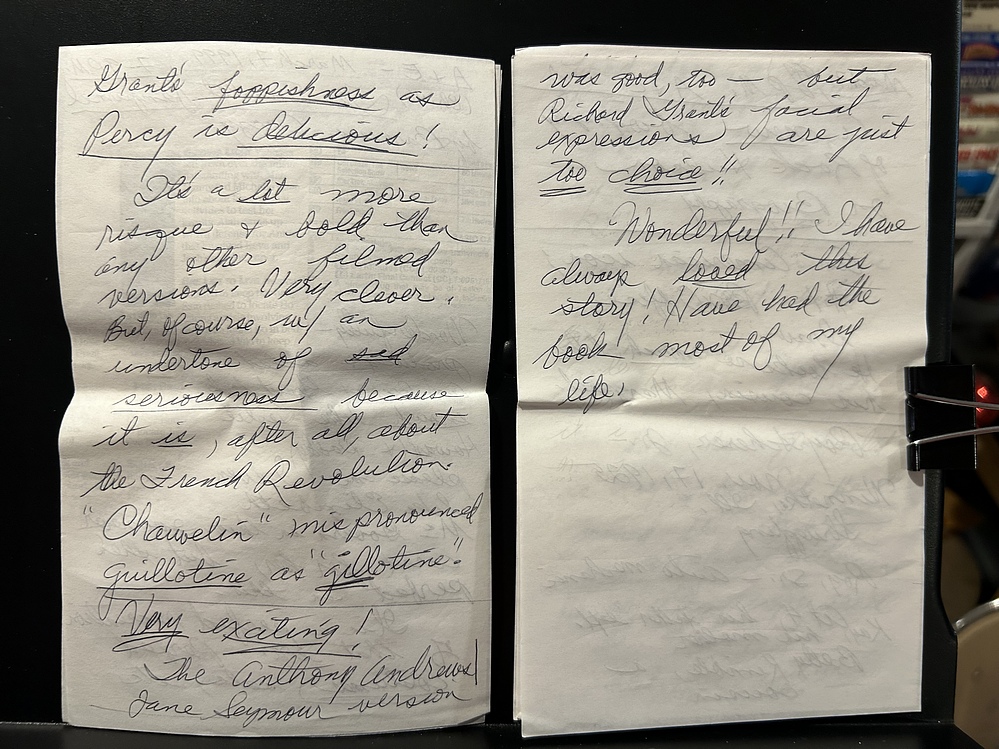 Grant's foppishness as
Percy is delicious!
It's a lot more
risque & bold than
any other filmed
versions. Very clever.
But, of course, w/ an
undertone of sad
seriousness because
it is, after all, about
the French Revolution.
"Chauvelin" mispronounced
guillotine as "gillotine".
Very exciting!
The Anthony Andrews/
Jane Seymour version
was good, too — but
Richard Grant's facial
expressions are just
too choice!!
Wonderful!! I have
always loved this
story! Have had the
book most of my
life.